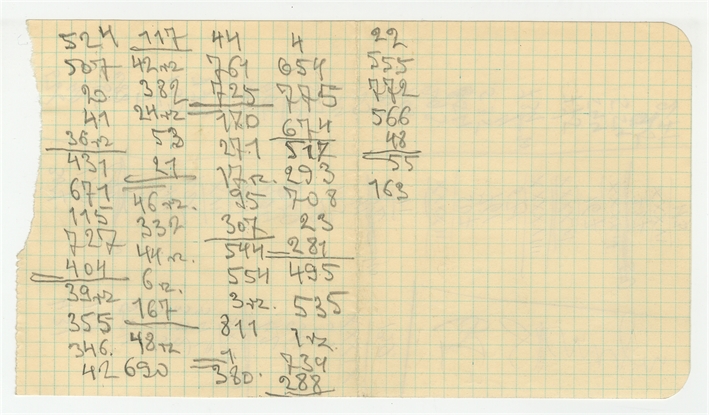 524
507
20
41
36+2
431
671
115
727
404
39+2
355
346.
42
117
42+2
382
24+2
53
21
46+2.
332
44+2.
6+2.
167
48+2
690
44
761
725
170
271
17+2.
95
307
544
554
3+2.
811
1
380.
4
054
775
674
517
293
708
23
281
495
535
1+2.
734
288
22
555
772
566
48
55
163